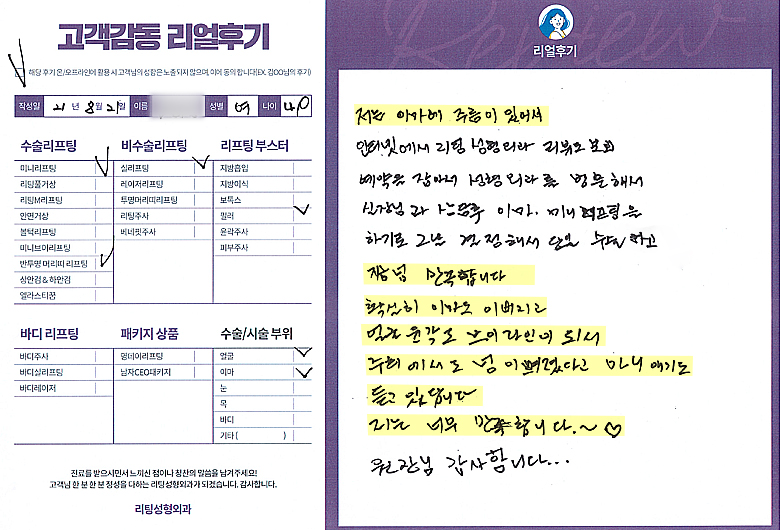 고객감동 리얼후기
해당 후기 온/오프라인에 활용 시 고객님의 성함은 노출되지 않으며, 이에 동의 합니다(EX. 김OO님의 후기)
작성일 21 년 8월 21일 이름 성별 여 나이
수술리프팅 비수술리프팅 리프팅 부스터
미니리프팅 실리프팅 지방흡입
리팅풀거상 레이저리프팅 지방이식
리팅M리프팅 투명머리띠리프팅 보톡스
안면거상 리팅주사 필러
볼턱리프팅 베네핏주사 윤곽주사
미니브이리프팅 피부주사
반투명 머리띠 리프팅
상안검 & 하안검
엘라스티꿈
바디 리프팅 패키지 상품 수술/시술 부위
바디주사 덩네이리프팅 얼굴
바디실리프팅 남자CEO패키지 이마
바디레이저 눈
목
바디
기타 ( )
진료를 받으시면서 느끼신 점이나 칭찬의 말씀을 남겨주세요!
고객님 한 분 한 분 정성을 다하는 리팅성형외과가 되겠습니다. 감사합니다.
리팅성형외과
Review
리얼후기
저는 이마에 주름이 있어서
인터넷에서 리팅 성형외과 리뷰도 보고
예약을 잡아서 성형외과를 방문해서
이마. 미니리프팅을
하기로 그날 결정해서 당일 수술하고
지금 넘 만족합니다
확실히 이마도 이뻐지고
얼굴 윤곽도 브이라인이 되서
주위에서도 넘 이뻐졌다고 마니 얘기도
듣고 있답니다
저는 너무 만족합니다.~ ♡
원장님 감사합니다...